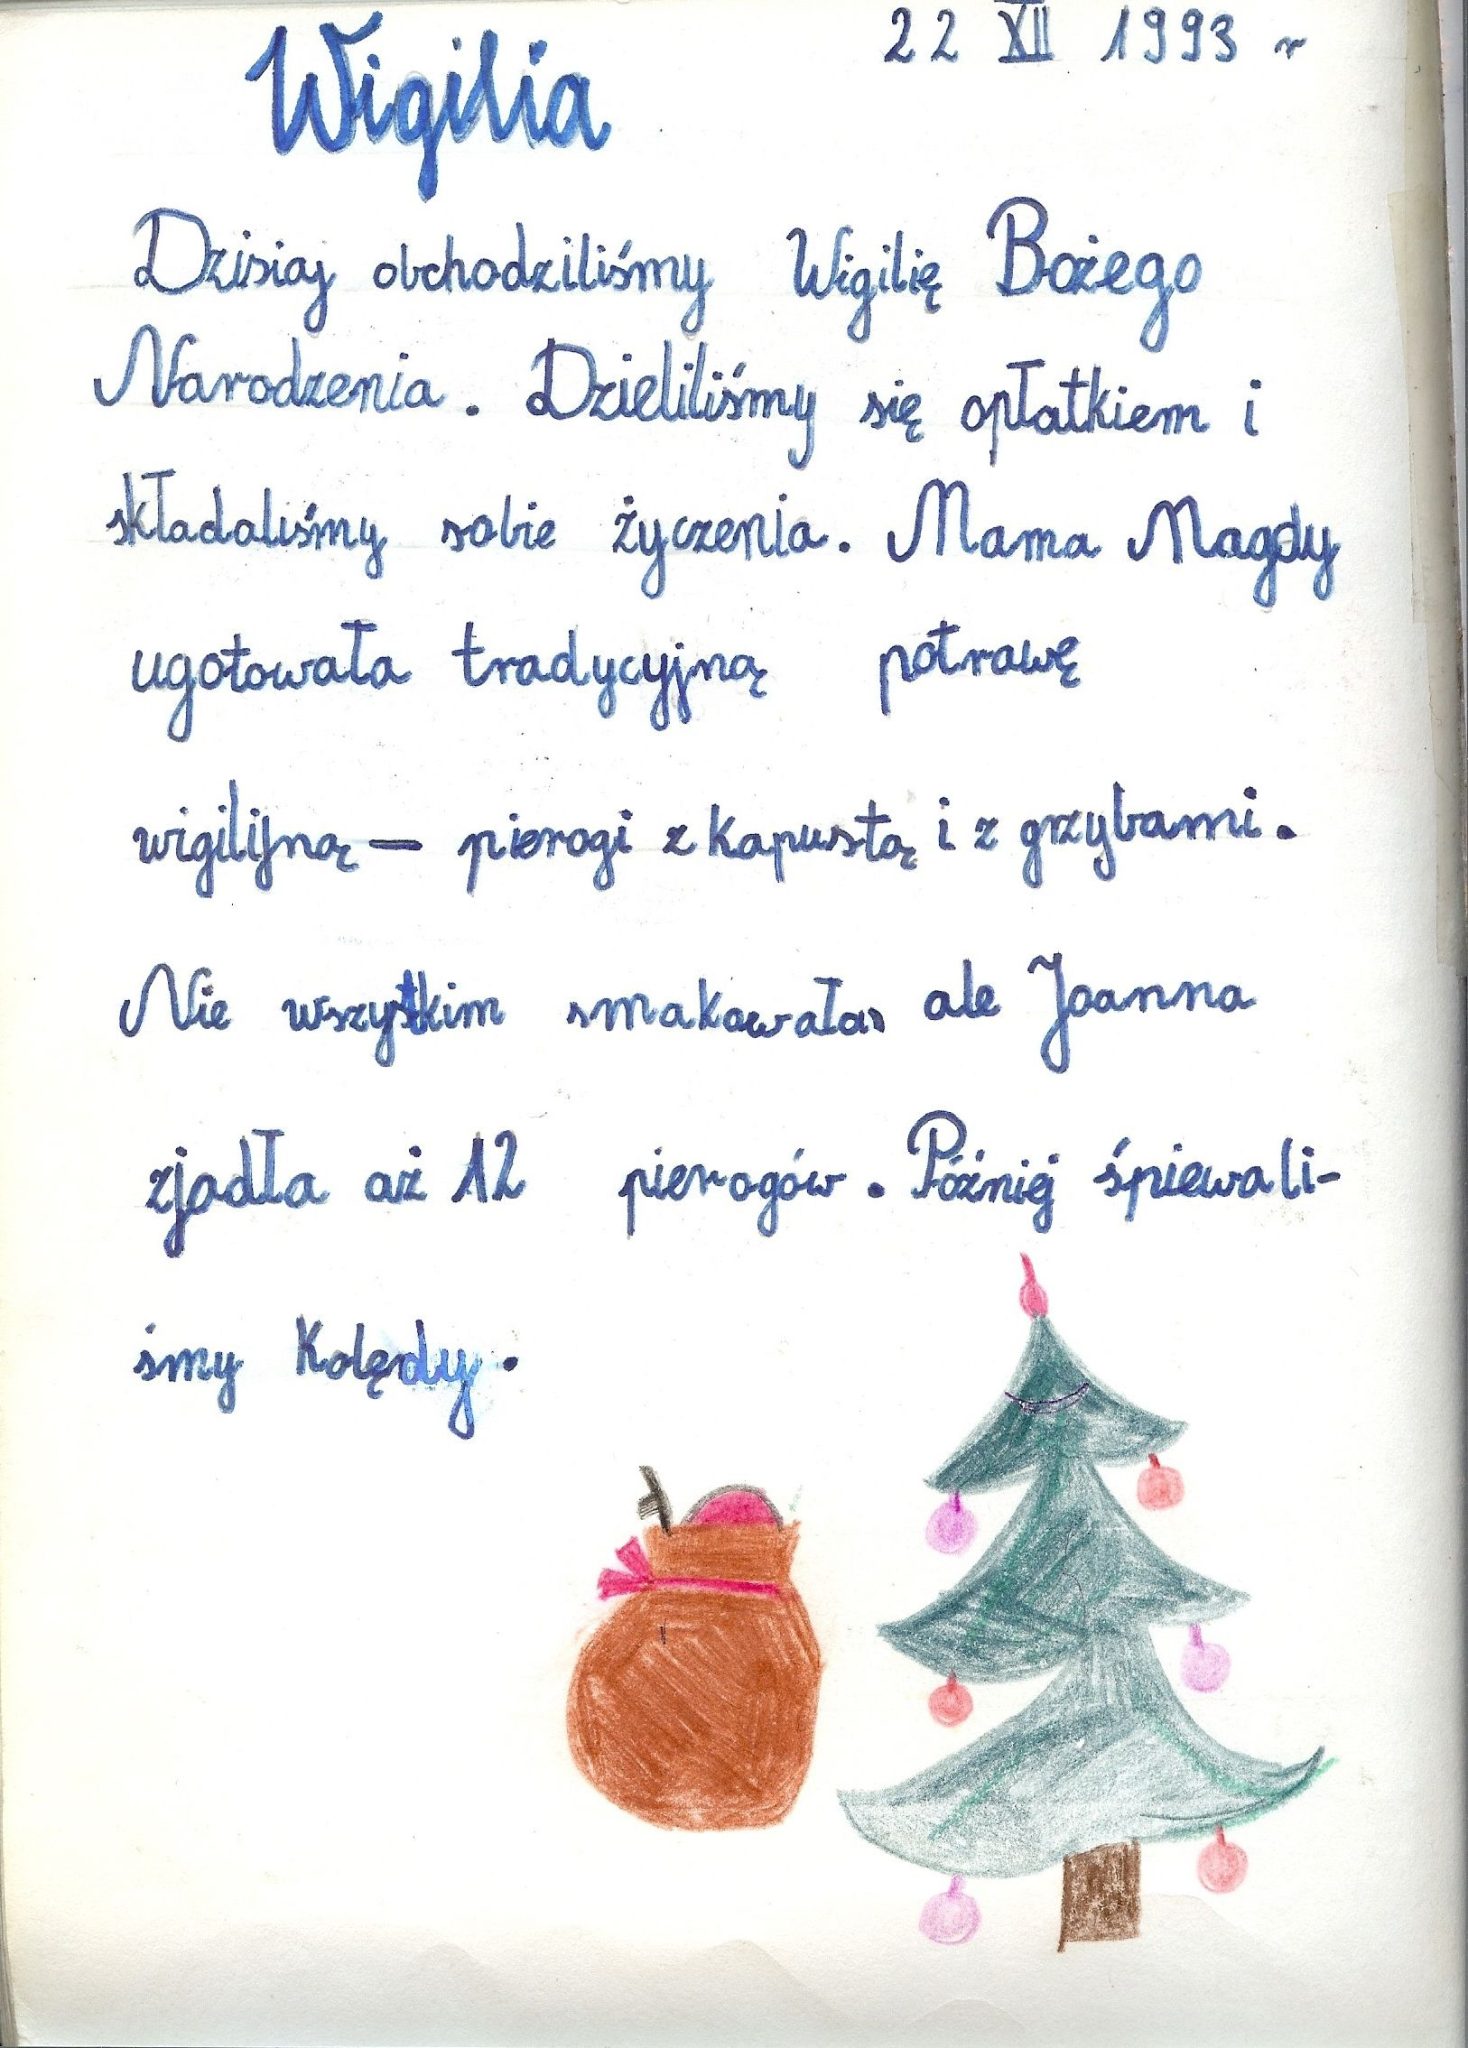 22 XII 1993 r
Wigilia
Dzisiaj obchodziliśmy Wigilię Bożego
Narodzenia. Dzieliliśmy się opłatkiem i
składaliśmy sobie życzenia. Mama Magdy
ugotowała tradycyjną potrawę
wigilijną - pierogi z kapustą i z grzybami.
Nie wszystkim smakowała, ale Joanna
zjadła aż 12 pierogów. Później śpiewali-
śmy Kolędy.